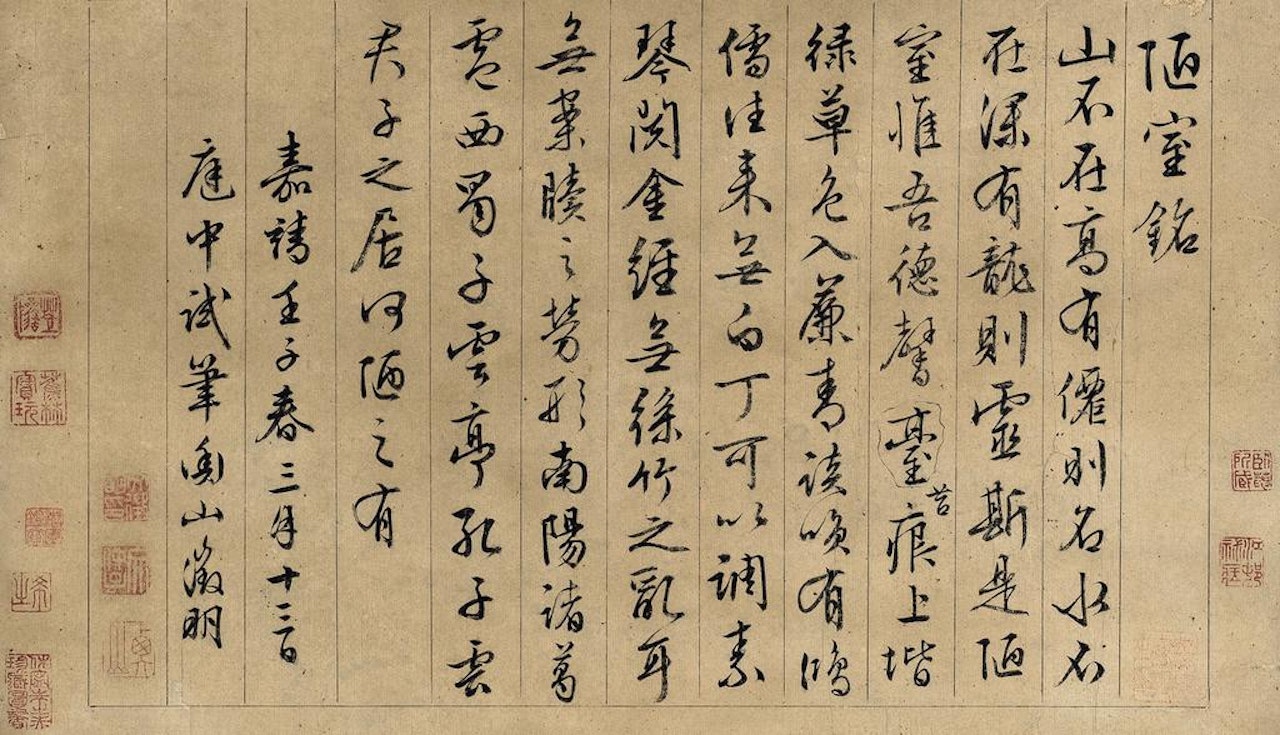 陋室銘
山不在高有僊則名水不
在深有龍則靈斯是陋
室惟吾德馨臺苔痕上堦
緑草色入簾青談咲有鴻
儒往來無白丁可以調素
琴閱金經無絲竹之亂耳
無案牘之勞形南陽諸葛
廬西蜀子雲亭孔子雲
君子之居何陋之有
嘉靖壬子春三月十三日
庭中試筆衡山徵明